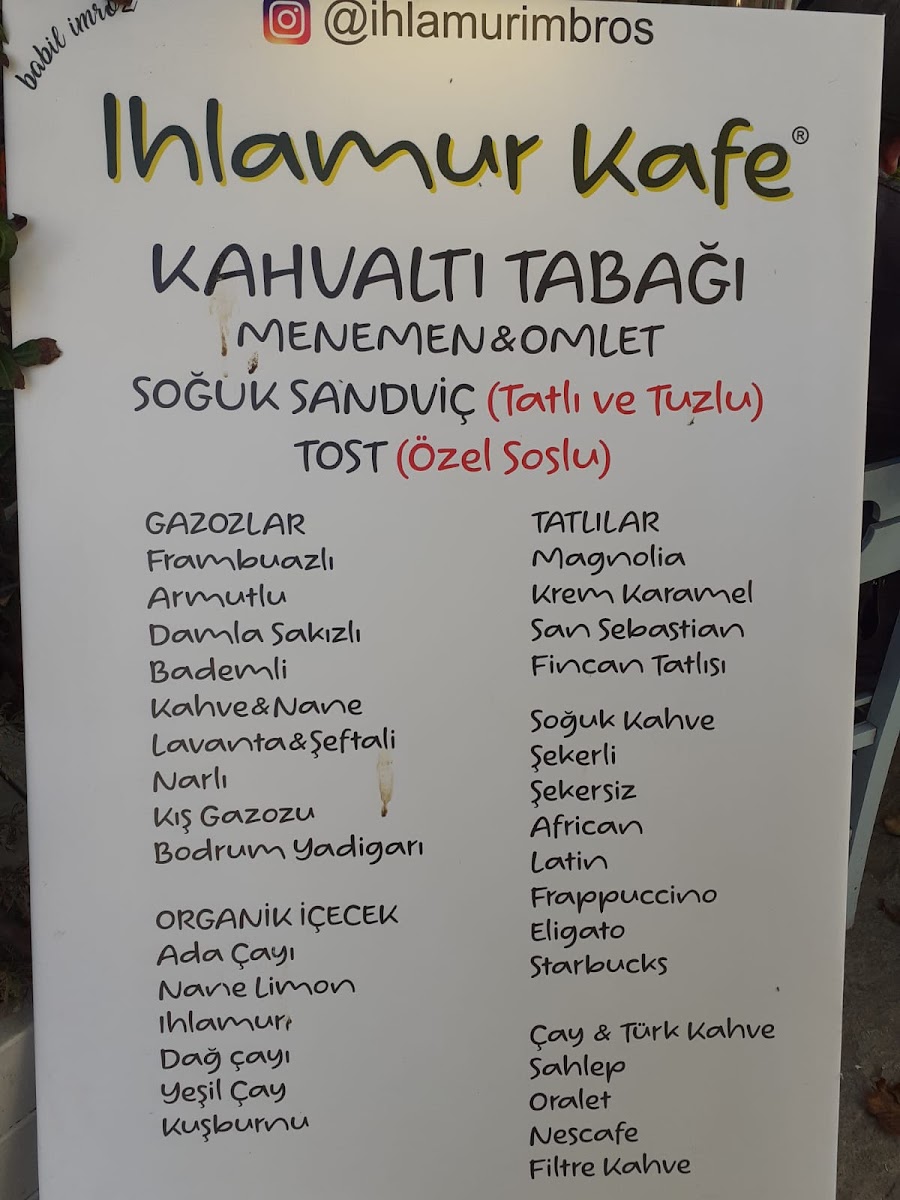 babil imroz
@ihlamurimbros
Ihlamur Kafe®
KAHVALTI TABAĞI
MENEMEN&OMLET
SOĞUK SANDVİÇ (Tatlı ve Tuzlu)
TOST (Özel Soslu)
GAZOZLAR
Frambuazlı
Armutlu
Damla Sakızlı
Bademli
Kahve&Nane
Lavanta&Şeftali
Narlı
Kış Gazozu
Bodrum Yadigarı
ORGANİK İÇECEK
Ada Çayı
Nane Limon
Ihlamur
Dağ çayı
Yeşil Çay
Kuşburnu
TATLILAR
Magnolia
Krem Karamel
San Sebastian
Fincan Tatlısı
Soğuk Kahve
Şekerli
Şekersiz
African
Latin
Frappuccino
Eligato
Starbucks
Çay & Türk Kahve
Sahlep
Oralet
Nescafe
Filtre Kahve